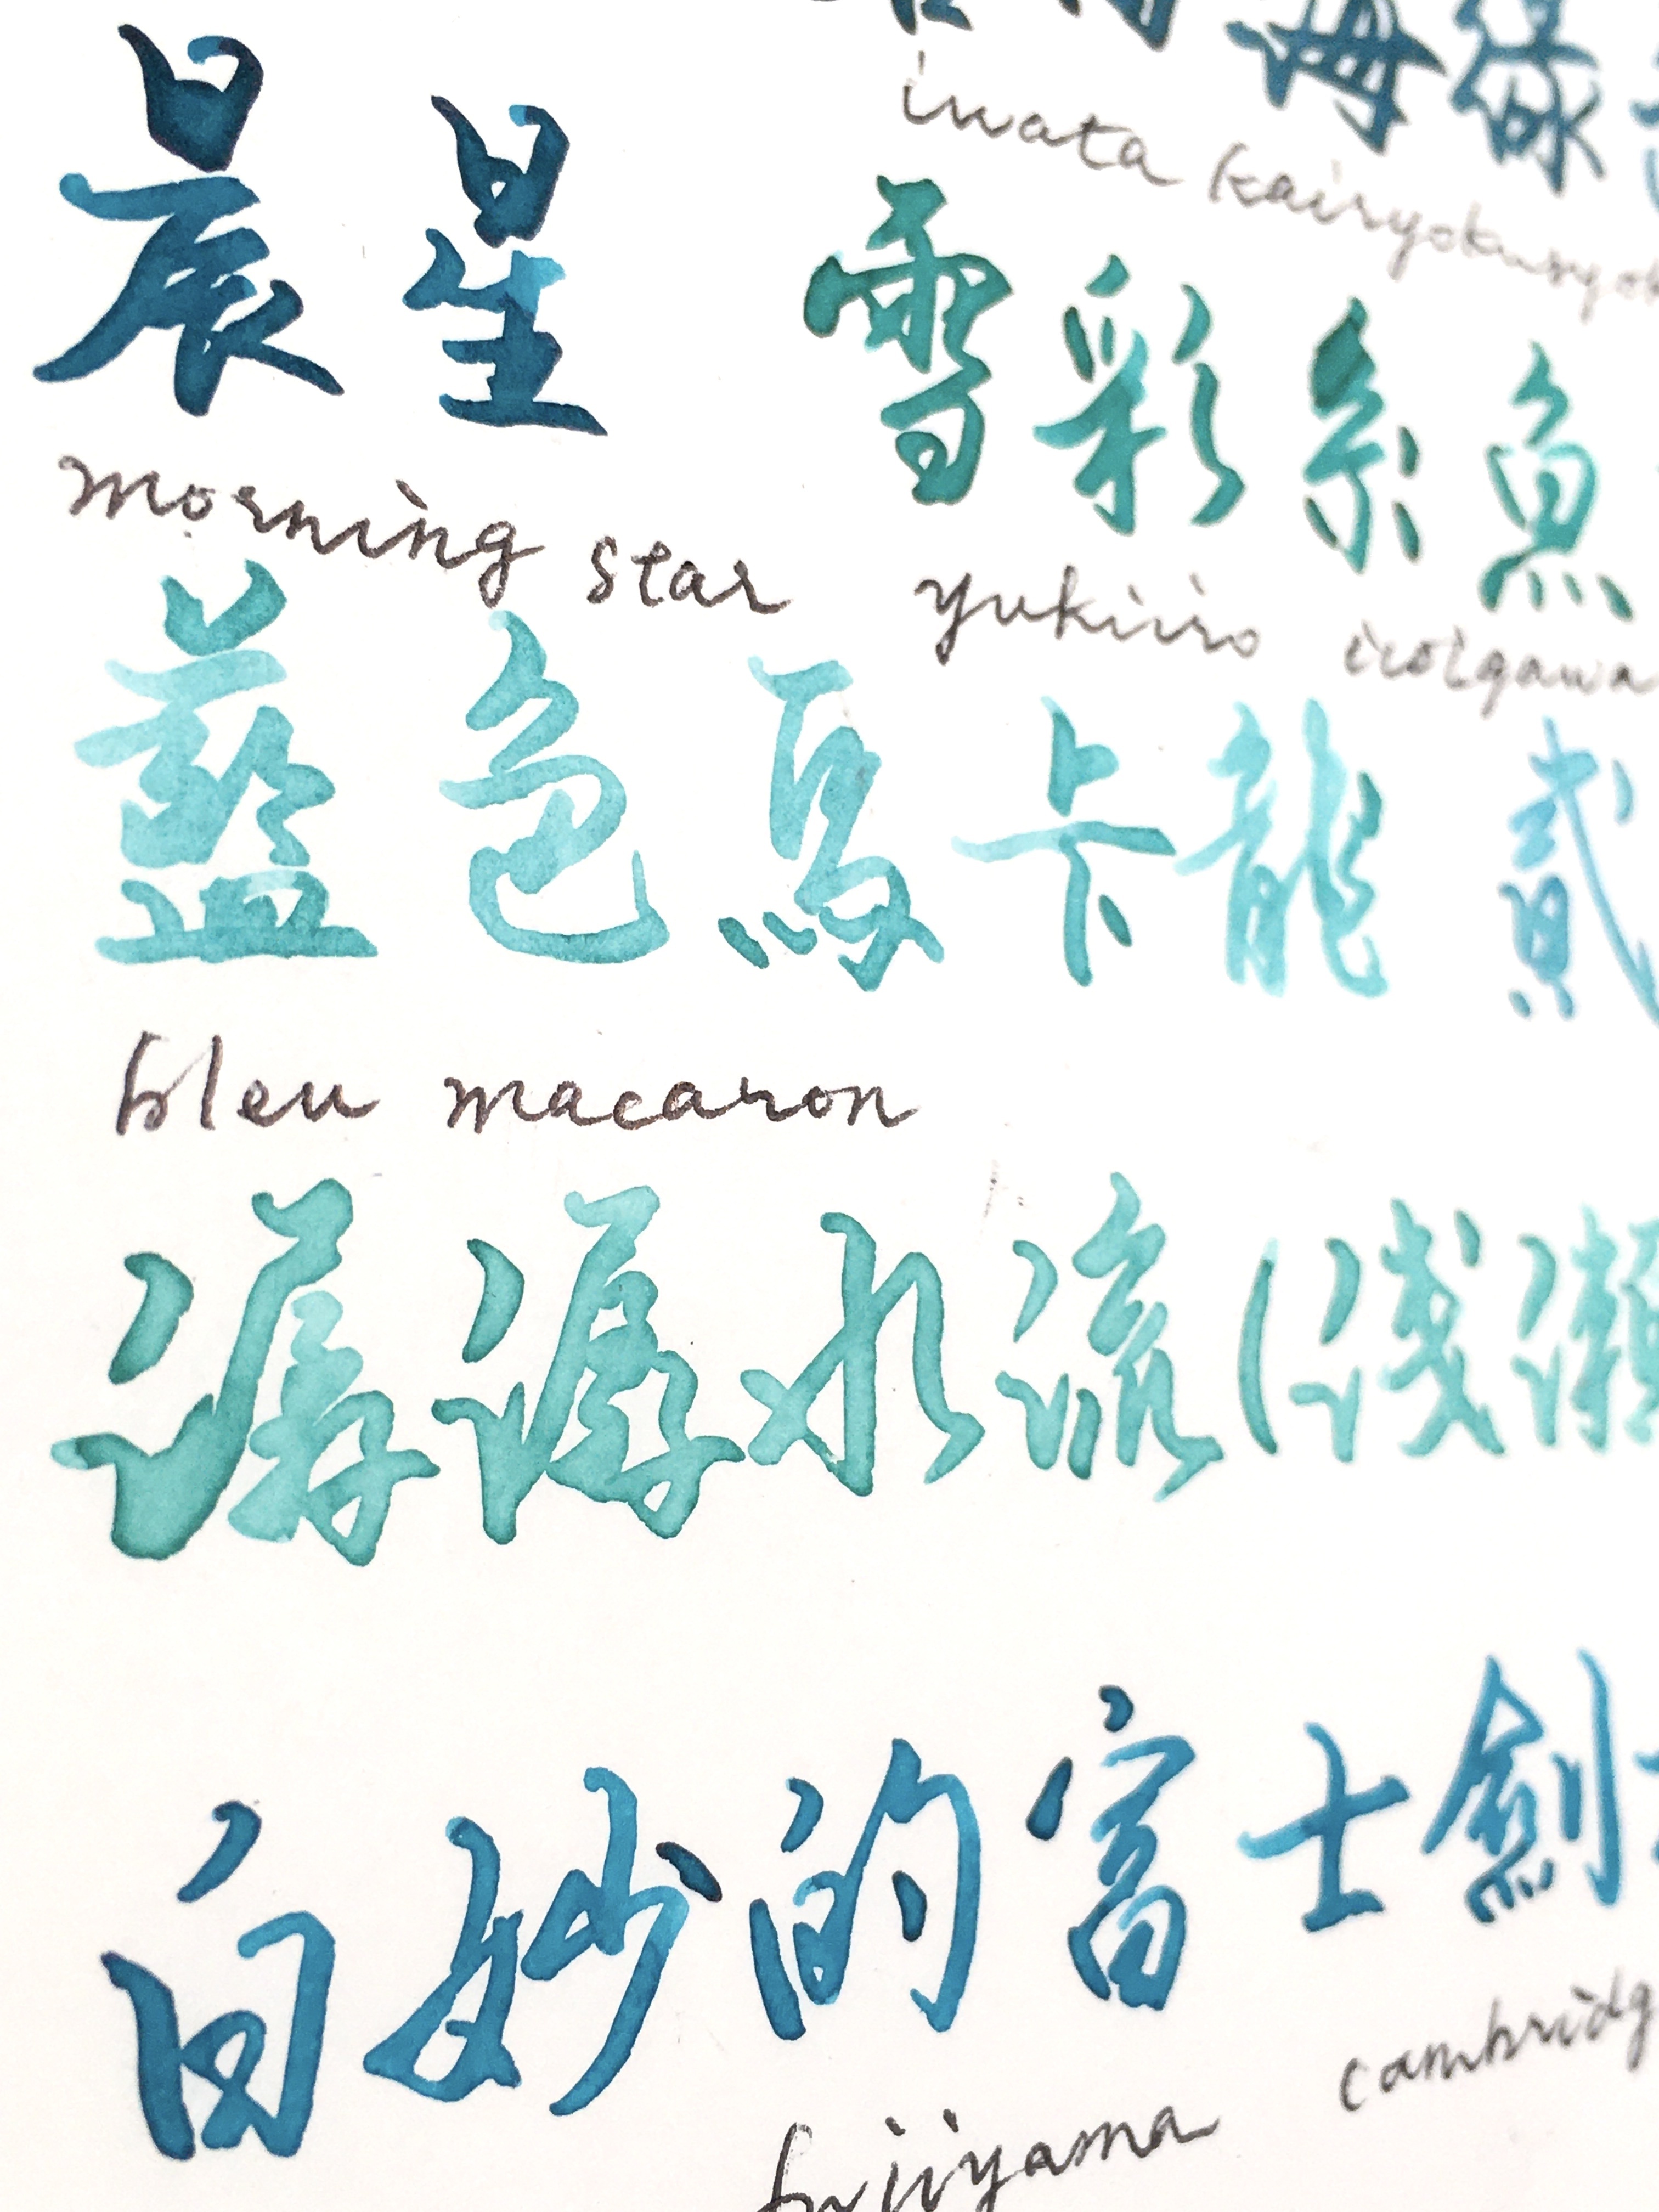 晨星
morning star
海緑
iwata kairyoku
雪彩糸魚
yukiiro itoigawa
藍色馬卡龍 貳
bleu macaron
潺潺水流(浅瀬
白妙的富士 劍
fujiyama
cambridg